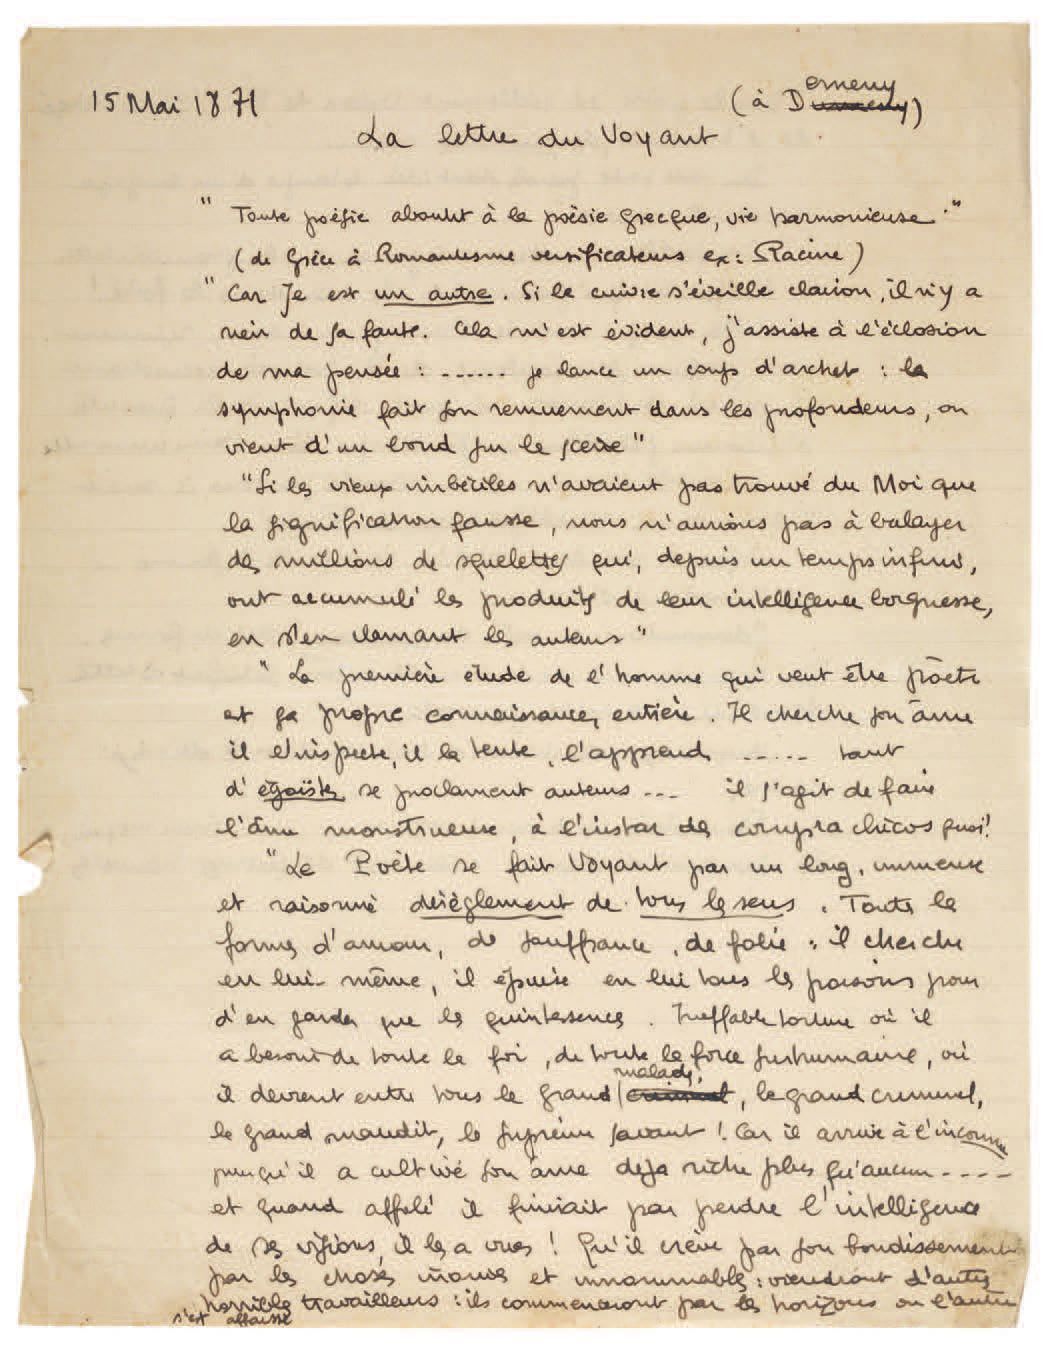 15 Mai 1871
(à Demeny)
La lettre du Voyant
" Toute poésie aboutit à la poésie grecque, vie harmonieuse."
(de Grèce à Romantisme versificateurs ex: Racine)
" Car Je est un autre. Si le cuivre s'éveille clairon, il n'y a
rien de sa faute. Cela m'est évident, j'assiste à l'éclosion
de ma pensée : ------ je lance un coup d'archet : la
symphonie fait son remuement dans les profondeurs, ou
vient d'un bond sur la scène"
"Si les vieux imbéciles n'avaient pas trouvé du Moi que
la signification fausse, nous n'aurions pas à balayer
des millions de squelettes qui, depuis un temps infini,
ont accumulé les produits de leur intelligence borgnesse,
en s'en clamant les auteurs"
" La première étude de l'homme qui veut être poète
et sa propre connaissance, entière. Il cherche son âme
il l'inspecte, il la tente, l'apprend ----- tant
d'égoïstes se proclament auteurs --- il s'agit de faire
l'âme monstrueuse, à l'instar des comprachicos quoi!
"Le Poète se fait Voyant par un long, immense
et raisonné dérèglement de tous les sens. Toutes les
formes d'amour, de souffrance, de folie : il cherche
en lui-même, il épuise en lui tous les poisons pour
d'en garder que les quintessences. Ineffable torture où il
a besoin de toute la foi, de toute la force surhumaine, où
il devient entre tous le grand malade, le grand criminel,
le grand maudit, le suprême savant! Car il arrive à l'inconnu
puisqu'il a cultivé son âme déjà riche plus qu'aucun ----
et quand affolé il finirait par perdre l'intelligence
de ses visions, il les a vues! Qu'il crève par son bondissement
par les choses inouïes et innommables : viendront d'autres
horribles travailleurs : ils commenceront par les horizons où l'autre
s'est affaissé